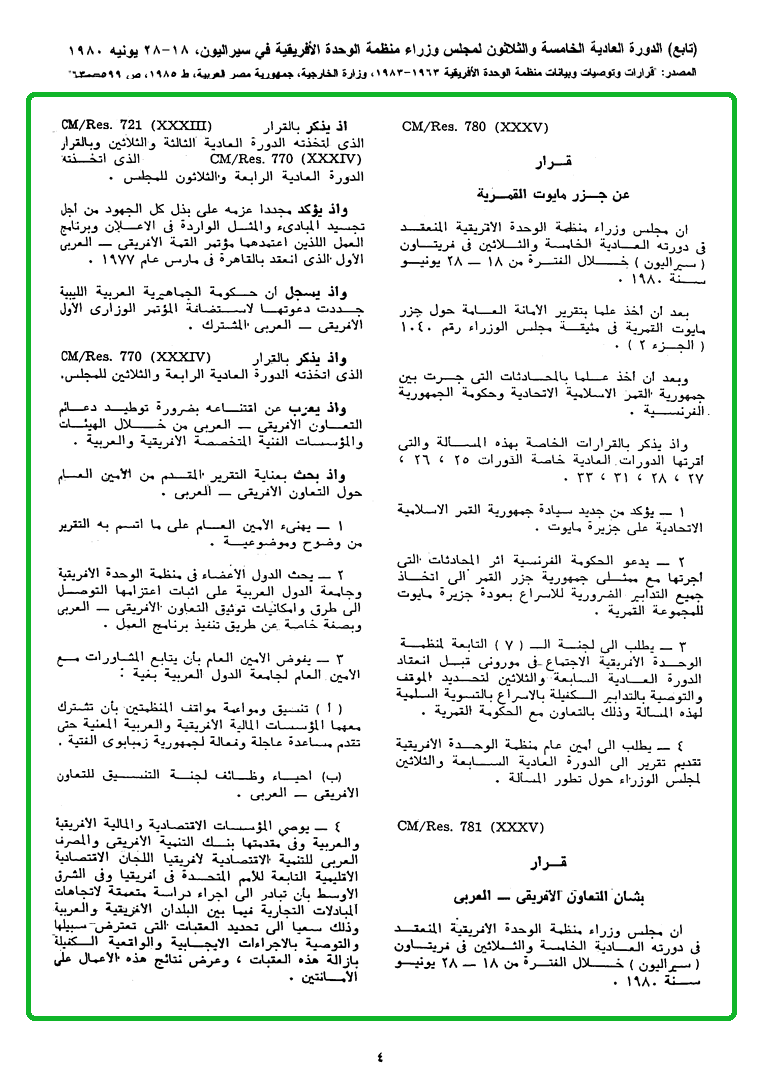 (تابع) الدورة العادية الخامسة والثلاثون لمجلس وزراء منظمة الوحدة الأفريقية في سيراليون، ١٨-٢٨ يونيه ١٩٨٠
المصدر: "قرارات وتوصيات وبيانات منظمة الوحدة الأفريقية ١٩٦٣-١٩٨٣، وزارة الخارجية، جمهورية مصر العربية، ط ١٩٨٥، ص ٥٩٩-٦٣٠"
CM/Res. 780 (XXXV)
قـرار
عن جزر مايوت القمـرية
ان مجلس وزراء منظمة الوحدة الافريقية المنعقـد
فى دورته العـادية الخامسة والثـلاثين فى فريتـاون
( سيراليون ) خـلال الفتـرة من ١٨ ــ ٢٨ يونيـو
سـنة ١٩٨٠ .
بعد ان أخذ علما بتقرير الأمانة العـامة حول جزر
مايوت القمرية فى مثيقة مجلس الوزراء رقم ١٠٤٠
( الجـزء ٢ ) .
وبعد ان أخذ عـلما بالمحـادثات التى جـرت بين
جمهورية القمر الاسلامية الاتحادية وحكومة الجمهورية
الفرنسـية .
واذ يذكر بالقرارات الخاصة بهذه المسـألة والتى
أقرتها الدورات العادية خاصة الدورات ٢٥ ، ٢٦ ،
٢٧ ، ٢٨ ، ٣١ ، ٣٣ .
١ ــ يؤكد من جديد سيادة جمهورية القمر الاسلامية
الاتحادية على جزيرة مايوت .
٢ ــ يدعو الحكومة الفرنسية اثر المحادثات التى
أجرتها مع ممثـلى جمهورية جزر القمر الى اتخـاذ
جميع التدابير الضرورية للاسراع بعودة جزيرة مايوت
للمجموعة القمرية .
٣ ــ يطلب الى لجنـة الـ ( ٧ ) التابعة لمنظمـة
الوحـدة الأفريقية الاجتماع فى مورونى قبـل انعقاد
الدورة العادية السابعة والثلاثين لتحديد الموقف
والتوصية بالتدابير الكفيلة بالاسراع بالتسوية السلمية
لهذه المسألة وذلك بالتعاون مع الحكومة القمرية .
٤ ــ يطلب الى أمين عام منظمة الوحـدة الأفريقية
تقديم تقرير الى الدورة العادية السـابعة والثلاثين
لمجلس الوزراء حول تطور المسألة .
CM/Res. 781 (XXXV)
قـرار
بشأن التعاون الافريقى ــ العربى
ان مجلس وزراء منظمة الوحدة الافريقية المنعقـد
فى دورته العـادية الخامسة والثـلاثين فى فريتـاون
( سيراليون ) خـلال الفتـرة من ١٨ ــ ٢٨ يونيـو
سـنة ١٩٨٠ .
اذ يذكر بالقرار CM/Res. 721 (XXXIII)
الذى اتخذته الدورة العادية الثالثة والثلاثين وبالقرار
CM/Res. 770 (XXXIV) الذى اتخـذته
الدورة العادية الرابعة والثلاثون للمجلس .
واذ يؤكد مجددا عزمه على بذل كل الجهود من أجل
تجسيد المبادىء والمثـل الواردة فى الاعـلان وبرنامج
العمل اللذين اعتمدهما مؤتمر القمة الأفريقى ــ العربى
الأول الذى انعقد بالقاهرة فى مارس عام ١٩٧٧ .
واذ يسجل أن حكـومة الجماهيرية العربية الليبية
جـددت دعوتهـا لاستضـافة المؤتمر الوزارى الأول
الافريقى ــ العربى المشترك .
واذ يذكر بالقرار CM/Res. 770 (XXXIV)
الذى اتخذته الدورة العادية الرابعة والثلاثين للمجلس.
واذ يعرب عن اقتنـاعه بضرورة توطيـد دعـائم
التعـاون الأفريقى ــ العربى من خـلال الهيئـات
والمؤسسات الفنية المتخصصة الافريقية والعربية .
واذ بحث بعناية التقرير المقـدم من الأمين العـام
حول التعاون الافريقى ــ العربى .
١ ــ يهنىء الأمين العـام على ما اتسم به التقرير
من وضوح وموضوعيـة .
٢ ــ يحث الدول الأعضاء فى منظمة الوحدة الأفريقية
وجامعة الدول العربية على اثبات اعتزامها التوصـل
الى طرق وامكانيات توثيق التعاون الأفريقى ــ العربى
وبصفة خاصة عن طريق تنفيذ برنامج العمل .
٣ ــ يفوض الأمين العام بأن يتابع المشـاورات مـع
الأمين العام لجامعة الدول العربية بغية :
( أ ) تنسيق ومواءمة مواقف المنظمتين بأن تشترك
معهما المؤسسات المالية الأفريقية والعربية المعنية حتى
تقدم مساعدة عاجلة وفعالة لجمهورية زمبابوى الفتية .
(ب) احيـاء وظـائف لجنـة التنسـيق للتعاون
الأفريقى ــ العربى .
٤ ــ يوصى المؤسسات الاقتصادية والمالية الأفريقية
والعربية وفى مقدمتها بنـك التنمية الأفريقى والمصرف
العربى للتنمية الاقتصادية لافريقيا اللجان الاقتصادية
الاقليمية التابعة للأمم المتحـدة فى أفريقيا وفى الشرق
الأوسط بأن تبادر الى اجراء دراسة متعمقة لاتجاهات
المبادلات التجارية فيما بين البلدان الأفريقية والعربية
وذلك سعيا الى تحديد العقبات التى تعترض سبيلها
والتوصية بالاجراءات الايجـابية والواقعية الكفيلة
بازالة هذه العقبات ، وعرض نتائج هذه الأعمال على
الأمـانتين .
٤